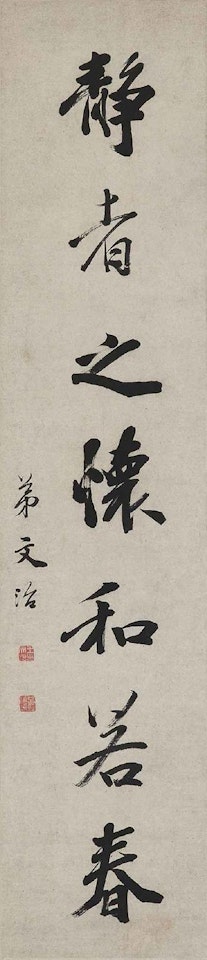 静者之懷和若春
弟文治